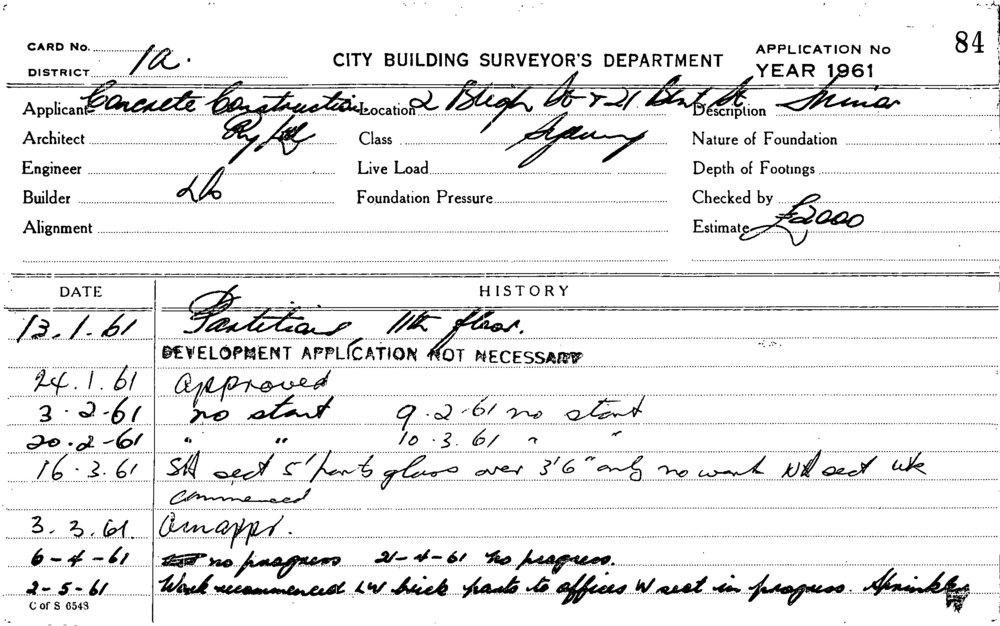 84
CARD No.
DISTRICT 1a.
CITY BUILDING SURVEYOR'S DEPARTMENT
APPLICATION No
YEAR 1961
Applicant Concrete Constructions Location 2 Bligh St & 21 Bent St Description Minor
Architect Class Sydney Nature of Foundation
Engineer Live Load Depth of Footings
Builder Do Foundation Pressure Checked by
Alignment Estimate £2000
DATE HISTORY
13.1.61 Partitions 11th floor.
DEVELOPMENT APPLICATION NOT NECESSARY
24.1.61 approved
3.2-61 no start 9.2.61 no start
20.2-61 " " 10.3.61 " "
16.3.61 sect 5' parts glass over 3'6" only no work sect wk
commenced
3.3.61 Amappr.
6-4-61 no progress 21-4-61 no progress.
2-5-61 Work recommenced LW brick parts to offices W sect in progress. Sprinkler
C of S 6543